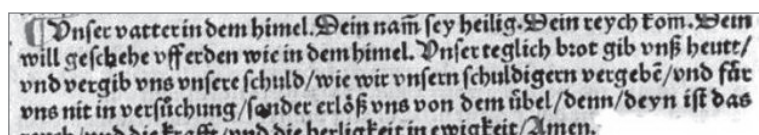 ¶ Vnſer vatter in dem himel. Dein nam̃ ſey heilig. Dein reych kom. Dein
will geſchehe vff erden wie in dem himel. Vnſer teglich brot gib vnß heutt/
vnd vergib vns vnſere ſchuld/wie wir vnſern ſchuldigern vergebẽ/vnd fuͤr
vns nit in verſuͤchung/ſonder erloͤß vns von dem uͤbel/denn/deyn iſt das
reych/vnd die krafft/vnd die herligkeit in ewigkeit/Amen.